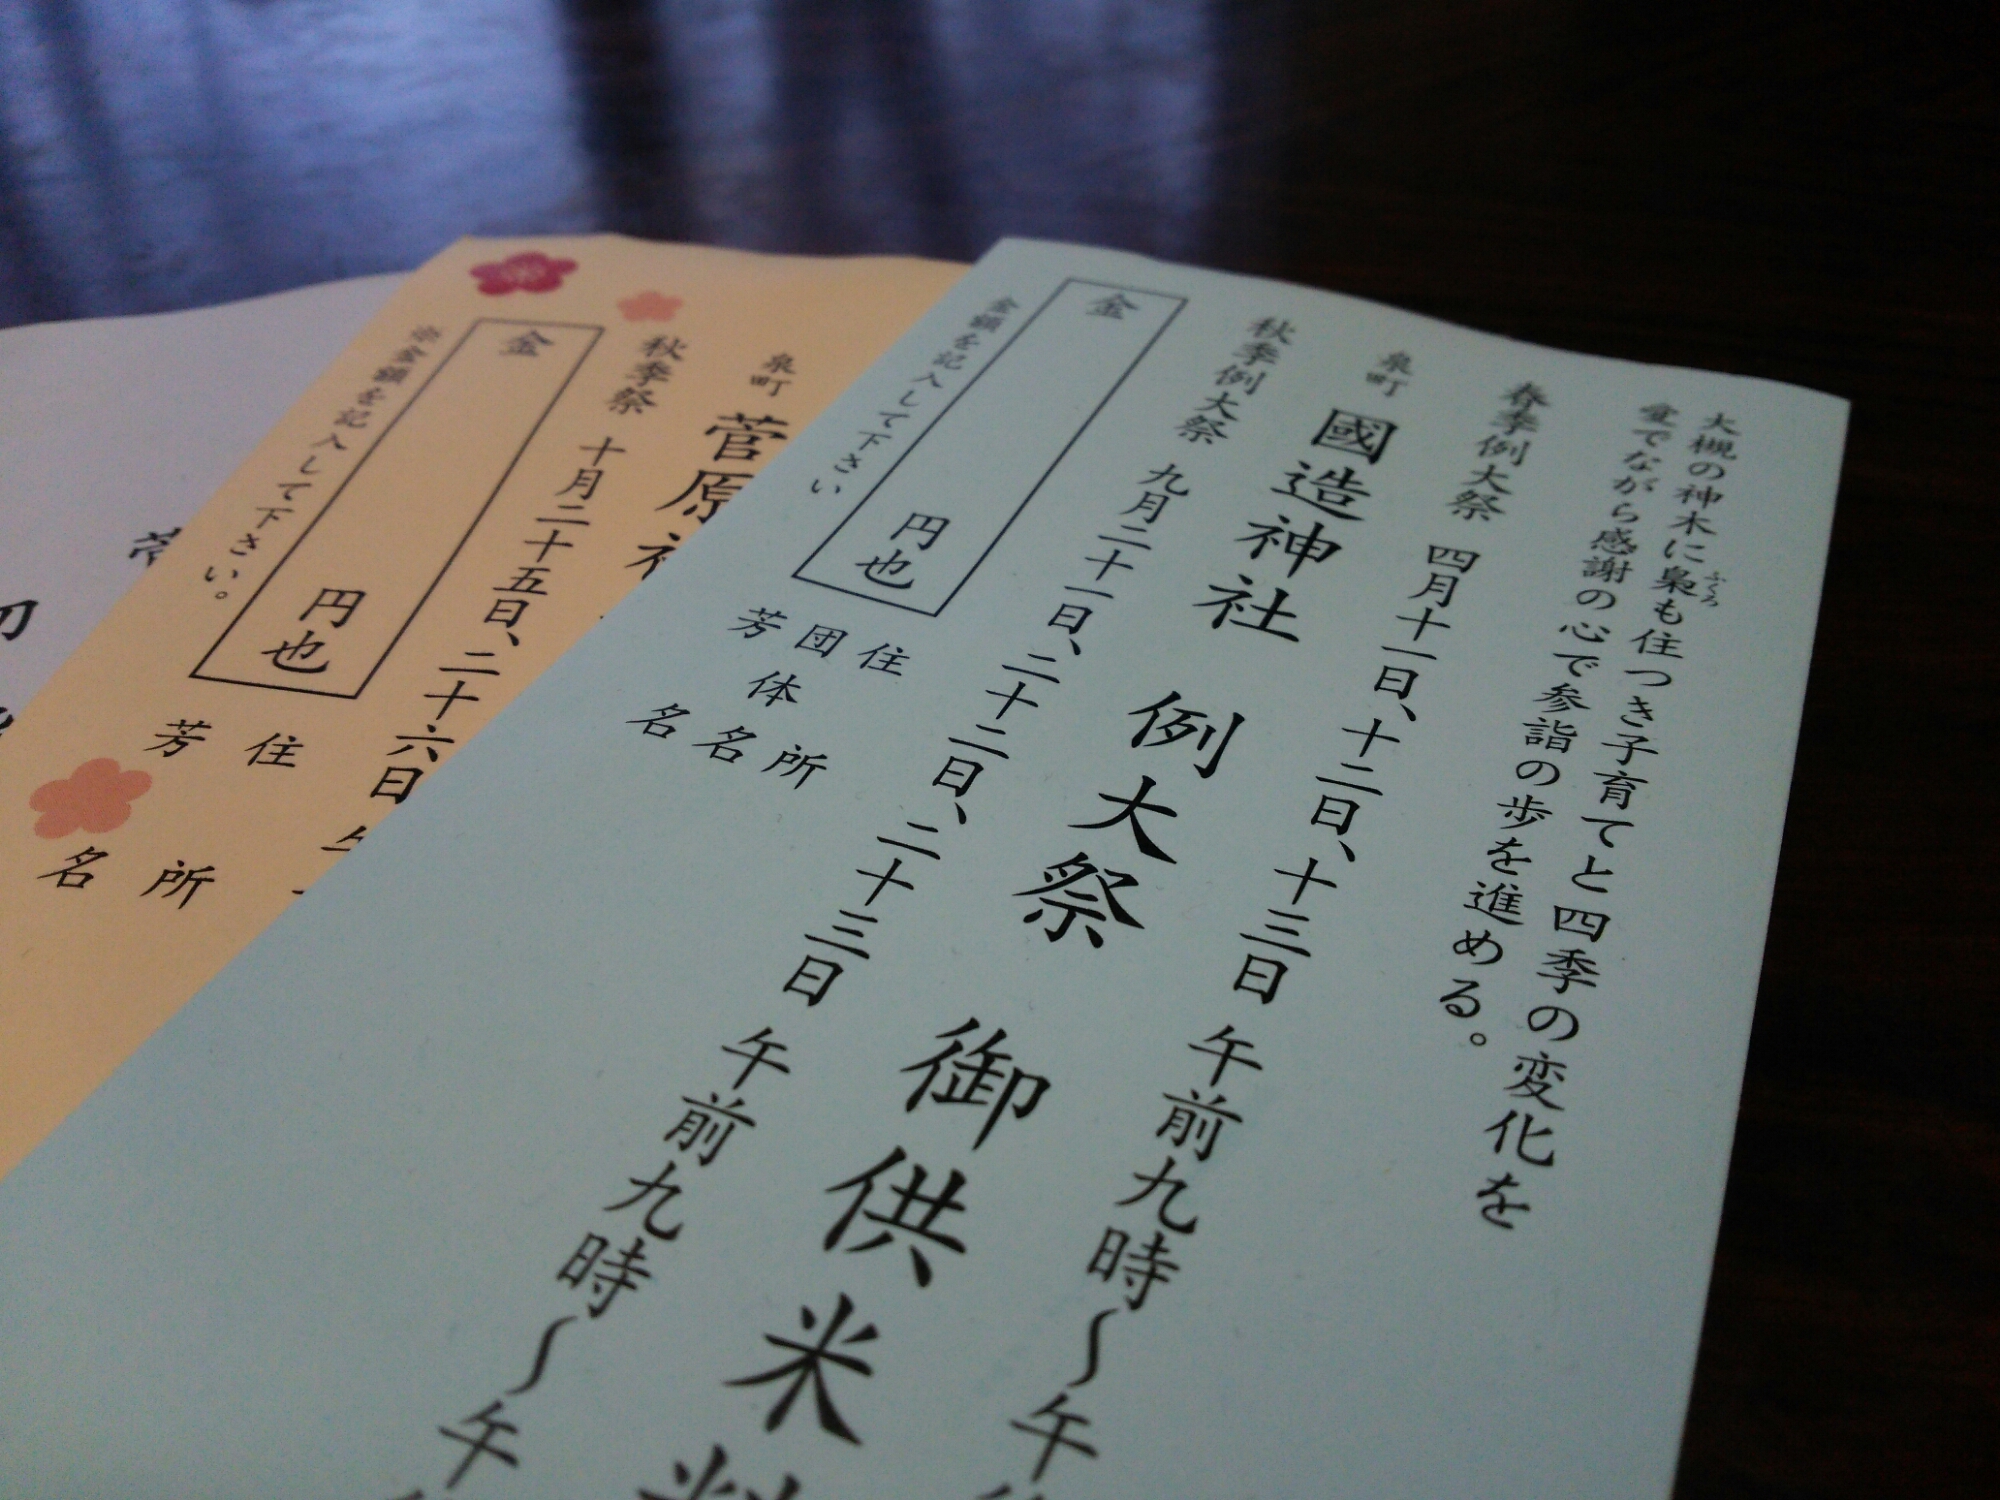 大槻の神木に梟も住つき子育てと四季の変化を
ふくろ
愛でながら感謝の心で参詣の歩を進める。
春季例大祭 四月十一日、十二日、十三日 午前九時〜午
泉町 國造神社 例大祭 御供米料
秋季例大祭 九月二十一日、二十二日、二十三日 午前九時〜午
金 円也
金額を記入して下さい
住所
団体名
芳名
泉町 菅原
秋季祭 十月二十五日、二十六日 午
金 円也
金額を記入して下さい。
住所
芳名